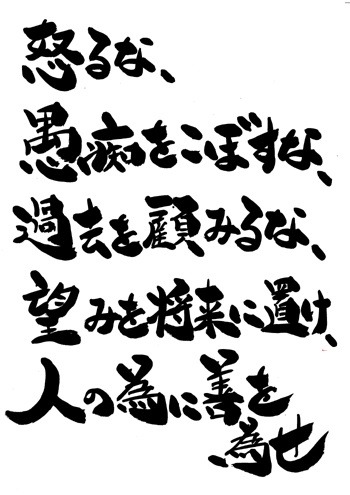 怒るな、
愚痴をこぼすな、
過去を顧みるな、
望みを将来に置け、
人の為に善を
為せ